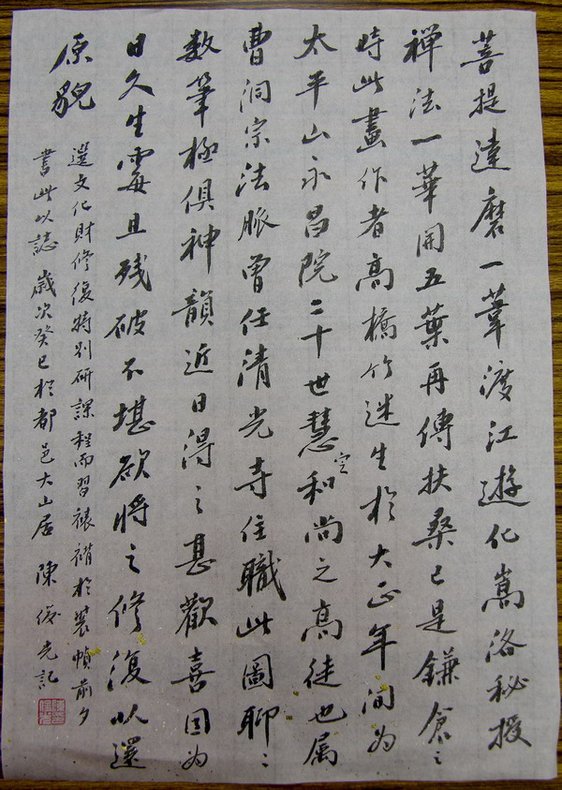 菩提達磨一葦渡江遊化嵩洛秘授
禅法一華開五葉再傳扶桑已是鎌倉之
時此畫作者高橋竹迷生於大正年間為
太平山永昌院二十世慧定和尚之高徒也属
曹洞宗法脈曾任清光寺住職此圖聊聊
数筆極俱神韻近日得之甚歡喜因為
日久生霉且残破不堪欲將之修復以還
原貌
選文化財修復特別研課程而習裱褙於裝幀前夕
書此以誌 歲次癸巳於都邑大山居 陳 光記